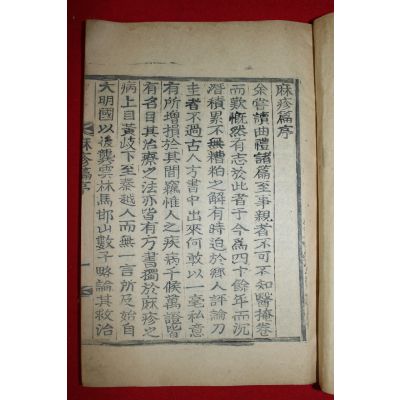 麻疹篇序
余嘗讀曲禮諸篇至事親者不可不知醫掩卷
而歎慨然有志於此者于今爲四十餘年而沉
潛積累不無糟粕之解有時迫於鄉人評論刀
圭者不過古人方書中出來何敢以一毫私意
有所增損於其間竊惟人之疾病千候萬證皆
有名目其治療之法亦皆有方書獨於麻疹之
病上自黃岐下至秦越人而無一言所及始自
大明國以後龔雲林馬邯山數子略論其救治
麻疹篇序